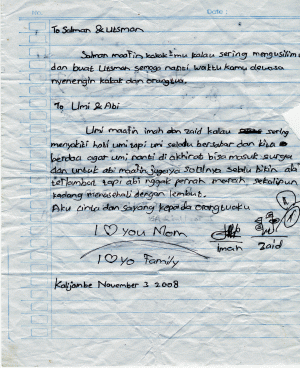 No. Date:
To Salman & Utsman
Salman maafin kakak²mu kalau sering mengusilimu
dan buat Utsman semoga nanti waktu kamu dewasa
nyenengin kakak dan orangtua.
To Umi & Abi
Umi maafin imah dan zaid kalau sering
menyakiti hati umi tapi umi selalu bersabar dan bisa
berdoa agar umi nanti di akhirat bisa masuk surga
dan untuk abi maafin juga ya soalnya selalu bikin abi
terlambat tapi abi nggak pernah marah sekalipun
kadang menasehati dengan lembut.
Aku cinta dan sayang kepada orangtuaku
I ♡ you Mom
I ♡ yo Family
Imah Zaid
November 3 2008